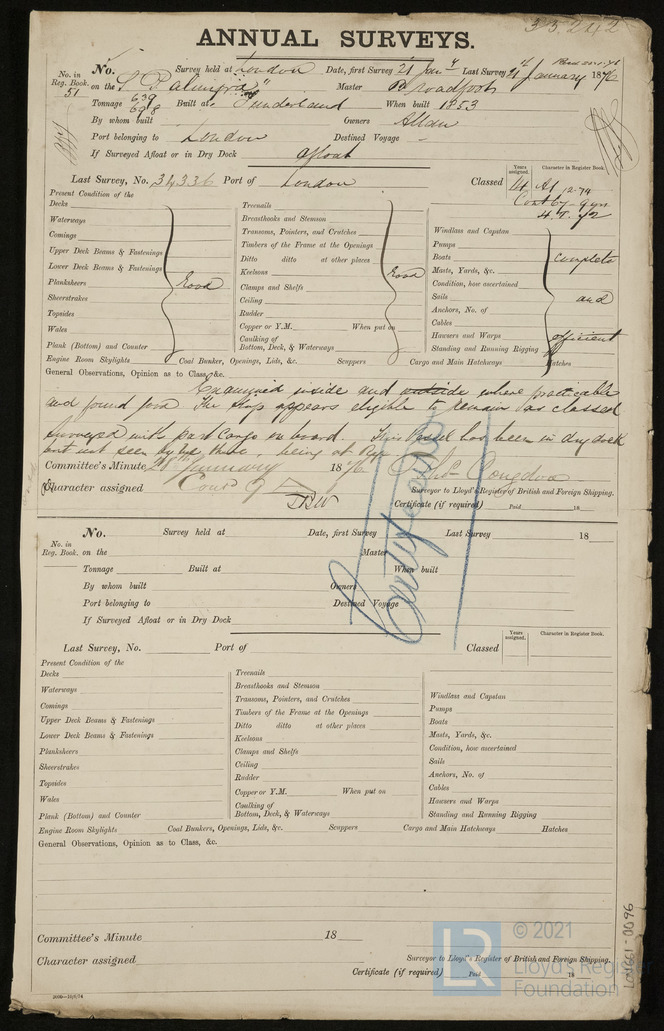 33242
ANNUAL SURVEYS.
No. Survey held at London Date, first Survey 21 Jany Last Survey 21 January 1876
No. in Reg. Book. 51 on the S "Palmyra" Master Broadfoot
Tonnage 639 698 Built at Sunderland When built 1853
By whom built Owners Allan
Port belonging to London Destined Voyage -
If Surveyed Afloat or in Dry Dock afloat
Last Survey, No. 34336 Port of London Classed
Years assigned. Character in Register Book.
14 A1 12.74
Present Condition of the
Decks
Waterways
Comings
Upper Deck Beams & Fastenings
Lower Deck Beams & Fastenings
Planksheers Good
Sheerstrakes
Topsides
Wales
Plank (Bottom) and Counter
Treenails
Breasthooks and Stemson
Transoms, Pointers, and Crutches
Timbers of the Frame at the Openings
Ditto ditto at other places
Keelsons Good
Clamps and Shelfs
Ceiling
Rudder
Copper or Y.M. When put on
Caulking of Bottom, Deck, & Waterways
Windlass and Capstan
Pumps
Boats complete
Masts, Yards, &c.
Condition, how ascertained
Sails and
Anchors, No. of
Cables
Hawsers and Warps efficient
Standing and Running Rigging
Engine Room Skylights Coal Bunker, Openings, Lids, &c. Scuppers Cargo and Main Hatchways Hatches
General Observations, Opinion as to Class, &c.
Examined inside and outside where practicable
and found good. The Ship appears eligible to remain as classed
Surveyed with part Cargo on board. This Vessel has been in dry dock
but not seen by
Committee's Minute 28 January 1876
Character assigned Cont
Surveyor to Lloyd's Register of British and Foreign Shipping.
Certificate (if required) Paid 18
No. Survey held at Date, first Survey Last Survey 18
No. in Reg. Book. on the Master
Tonnage Built at When built
By whom built Owners
Port belonging to Destined Voyage
If Surveyed Afloat or in Dry Dock
Years assigned. Character in Register Book.
Last Survey, No. Port of Classed
Present Condition of the
Decks
Waterways
Comings
Upper Deck Beams & Fastenings
Lower Deck Beams & Fastenings
Planksheers
Sheerstrakes
Topsides
Wales
Plank (Bottom) and Counter
Treenails
Breasthooks and Stemson
Transoms, Pointers, and Crutches
Timbers of the Frame at the Openings
Ditto ditto at other places
Keelsons
Clamps and Shelfs
Ceiling
Rudder
Copper or Y.M. When put on
Caulking of Bottom, Deck, & Waterways
Windlass and Capstan
Pumps
Boats
Masts, Yards, &c.
Condition, how ascertained
Sails
Anchors, No. of
Cables
Hawsers and Warps
Standing and Running Rigging
Engine Room Skylights Coal Bunkers, Openings, Lids, &c. Scuppers Cargo and Main Hatchways Hatches
General Observations, Opinion as to Class, &c.
Committee's Minute 18
Character assigned
Surveyor to Lloyd's Register of British and Foreign Shipping.
Certificate (if required) Paid 18
LR © 2021
Lloyd's Register
Foundation
LON661-0096